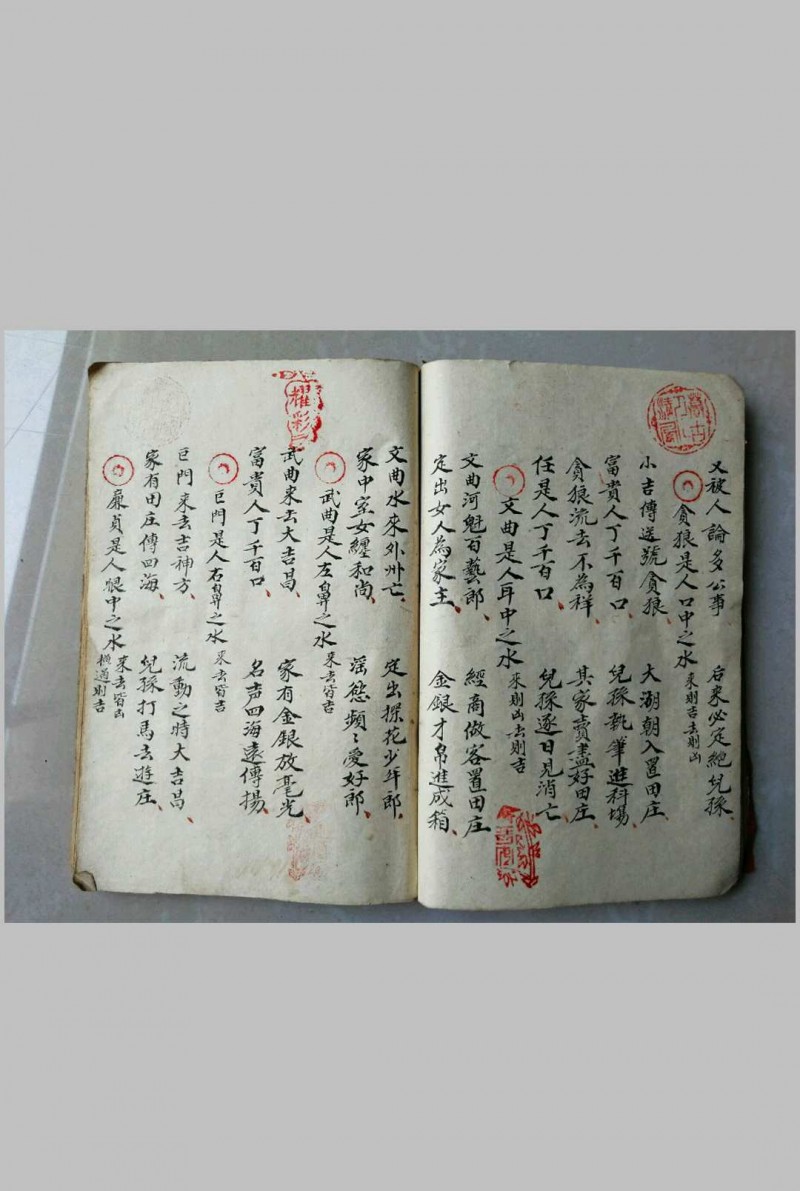 又被人論多公事 后来必定絕兒孫
貪狼是人口中之水 来則吉去則凶
小吉傳送號貪狼 大潮朝入置田庄
富貴人丁千百口 兒孫执筆進科場
貪狼流去不為祥 其家賣盡好田庄
任是人丁千百口 兒孫逐日見消亡
文曲是人耳中之水 来則凶去則吉
文曲河魁百藝郎 經商做客置田庄
定出女人為家主 金銀才帛進成箱
文曲水來外州亡 定出探花少年郎
家中室女纏和尚 滛慾頻〻愛好郎
武曲是人左鼻之水 来去皆吉
武曲来去大吉昌 家有金銀放毫光
富貴人丁千百口 名声四海遠傳揚
巨門是人右鼻之水 来去皆吉
巨門来去吉神方 流動之時大吉昌
家有田庄傳四海 兒孫打馬去遊庄
廉貞是人眼中之水 来去皆凶
橫過則吉
耀彩